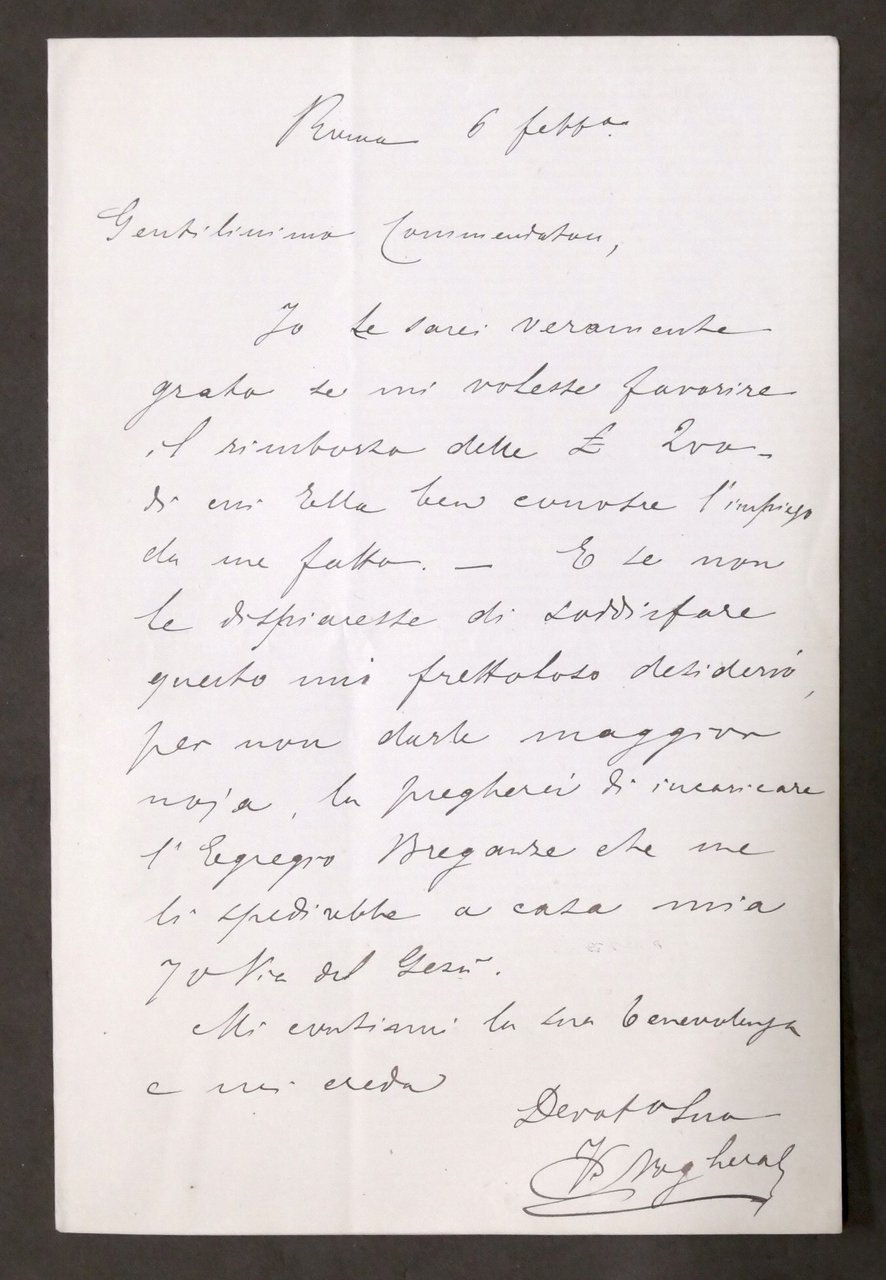 Roma 6 febbo.
Gentilissimo Commendatore,
Io Le sarei veramente
grato se mi volesse favorire
il rimborso delle £ 200 -
di cui Ella ben conosce l'impiego
da me fatto. — E se non
le dispiacesse di soddisfare
questo mio frettoloso desiderio,
per non darle maggior
noja, la pregherei di incaricare
l'Egregio Breganze che me
li spedirebbe a casa mia
70 Via del Gesù.
Mi continui la sua benevolenza
e mi creda
Devoto Suo